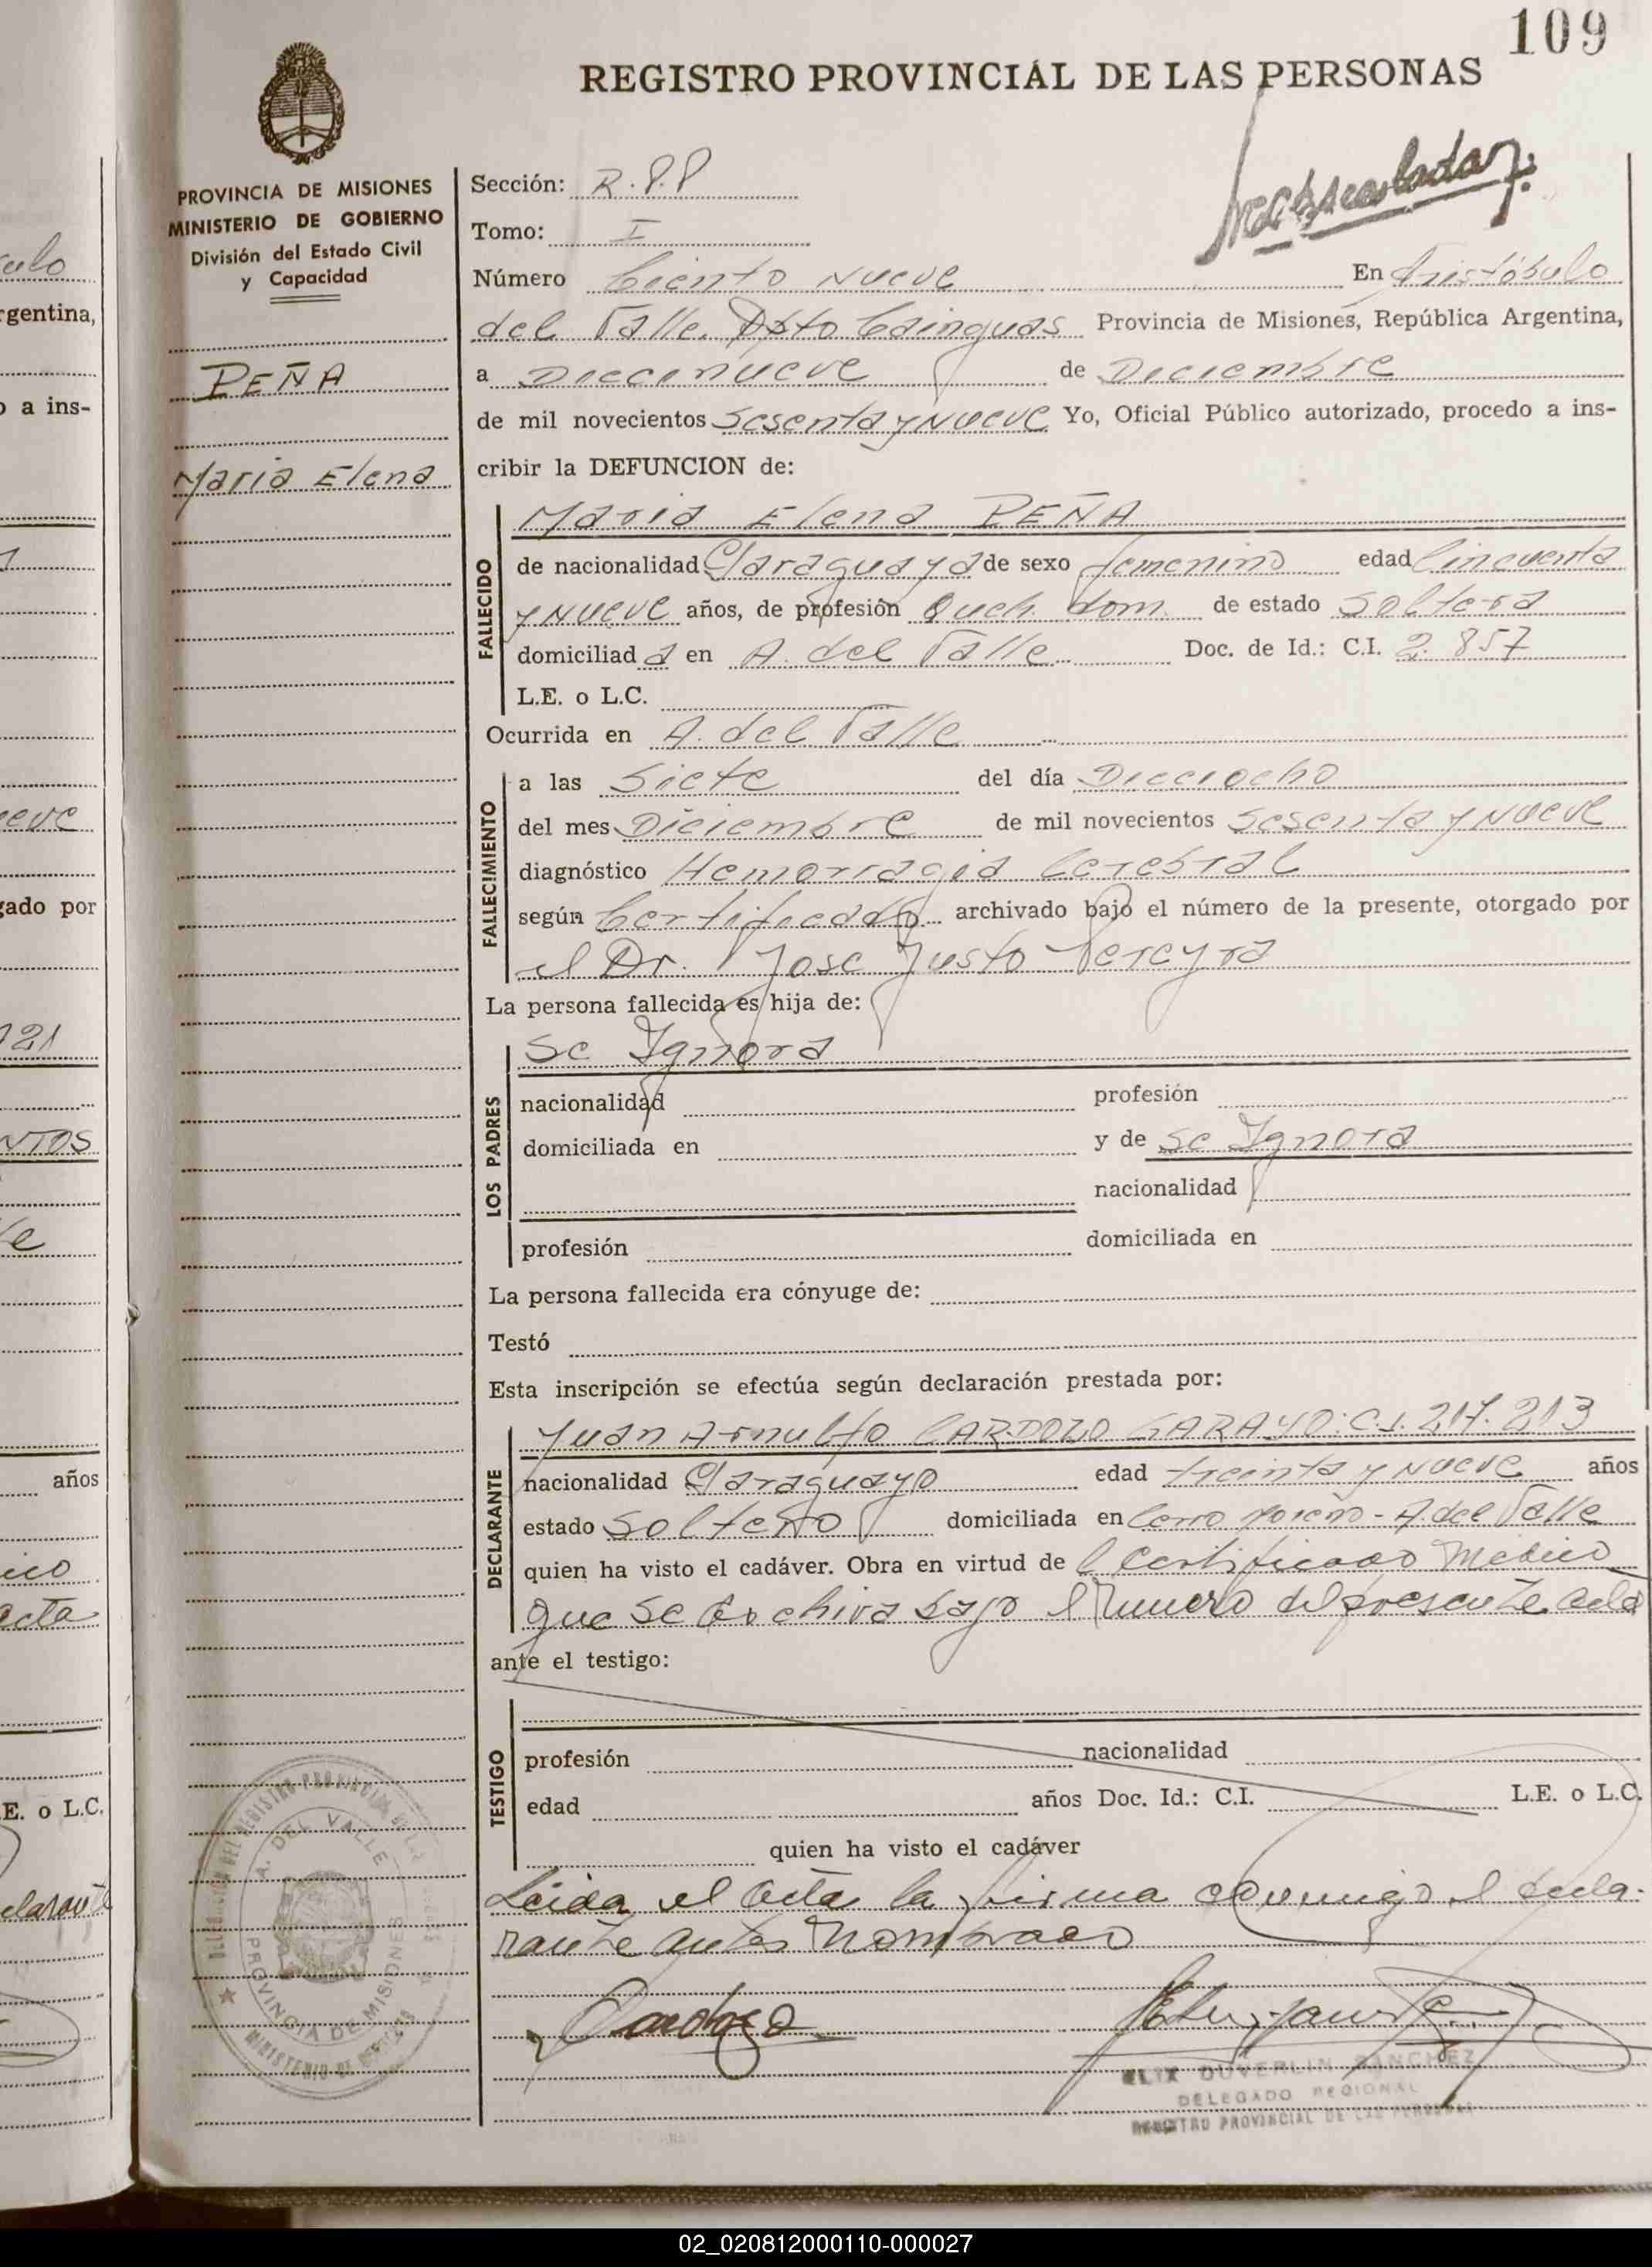 109
REGISTRO PROVINCIAL DE LAS PERSONAS
PROVINCIA DE MISIONES
MINISTERIO DE GOBIERNO
División del Estado Civil
y Capacidad
PEÑA
Maria Elena
Sección: R.P.P
Tomo: I
Número Ciento Nueve En Aristóbulo
del Valle. Dpto Cainguas Provincia de Misiones, República Argentina,
a Diecinueve de Diciembre
de mil novecientos Sesenta y Nueve Yo, Oficial Público autorizado, procedo a ins-
cribir la DEFUNCION de:
FALLECIDO
Maria Elena PEÑA
de nacionalidad Paraguaya de sexo femenino edad Cincuenta
y Nueve años, de profesión Queh. dom. de estado Soltera
domiciliad a en A. del Valle Doc. de Id.: C.I. 2.857
L.E. o L.C.
Ocurrida en A. del Valle
FALLECIMIENTO
a las Siete del día Dieciocho
del mes Diciembre de mil novecientos Sesenta y Nueve
diagnóstico Hemorragia Cerebral
según Certificado archivado bajo el número de la presente, otorgado por
el Dr. Jose Justo Pereyra
La persona fallecida es hija de:
LOS PADRES
Se Ignora
nacionalidad profesión
domiciliada en y de Se Ignora
nacionalidad
profesión domiciliada en
La persona fallecida era cónyuge de:
Testó
Esta inscripción se efectúa según declaración prestada por:
DECLARANTE
Juan Arnulfo CARDOZO GARAYO: C.I. 217.213
nacionalidad Paraguayo edad treinta y Nueve años
estado Soltero domiciliada en Cerro Moreno - A. del Valle
quien ha visto el cadáver. Obra en virtud de l Certificado Medico
que se archiva bajo el Numero del presente acta
ante el testigo:
TESTIGO
profesión nacionalidad
edad años Doc. Id.: C.I. L.E. o L.C.
quien ha visto el cadáver
Leida el acta la firma conmigo el decla-
rante antes nombrado
Cardozo
DUVERLIN SANCHEZ
DELEGADO REGIONAL
REGISTRO PROVINCIAL DE LAS PERSONAS
A. DEL VALLE
PROVINCIA DE MISIONES
02_020812000110-000027